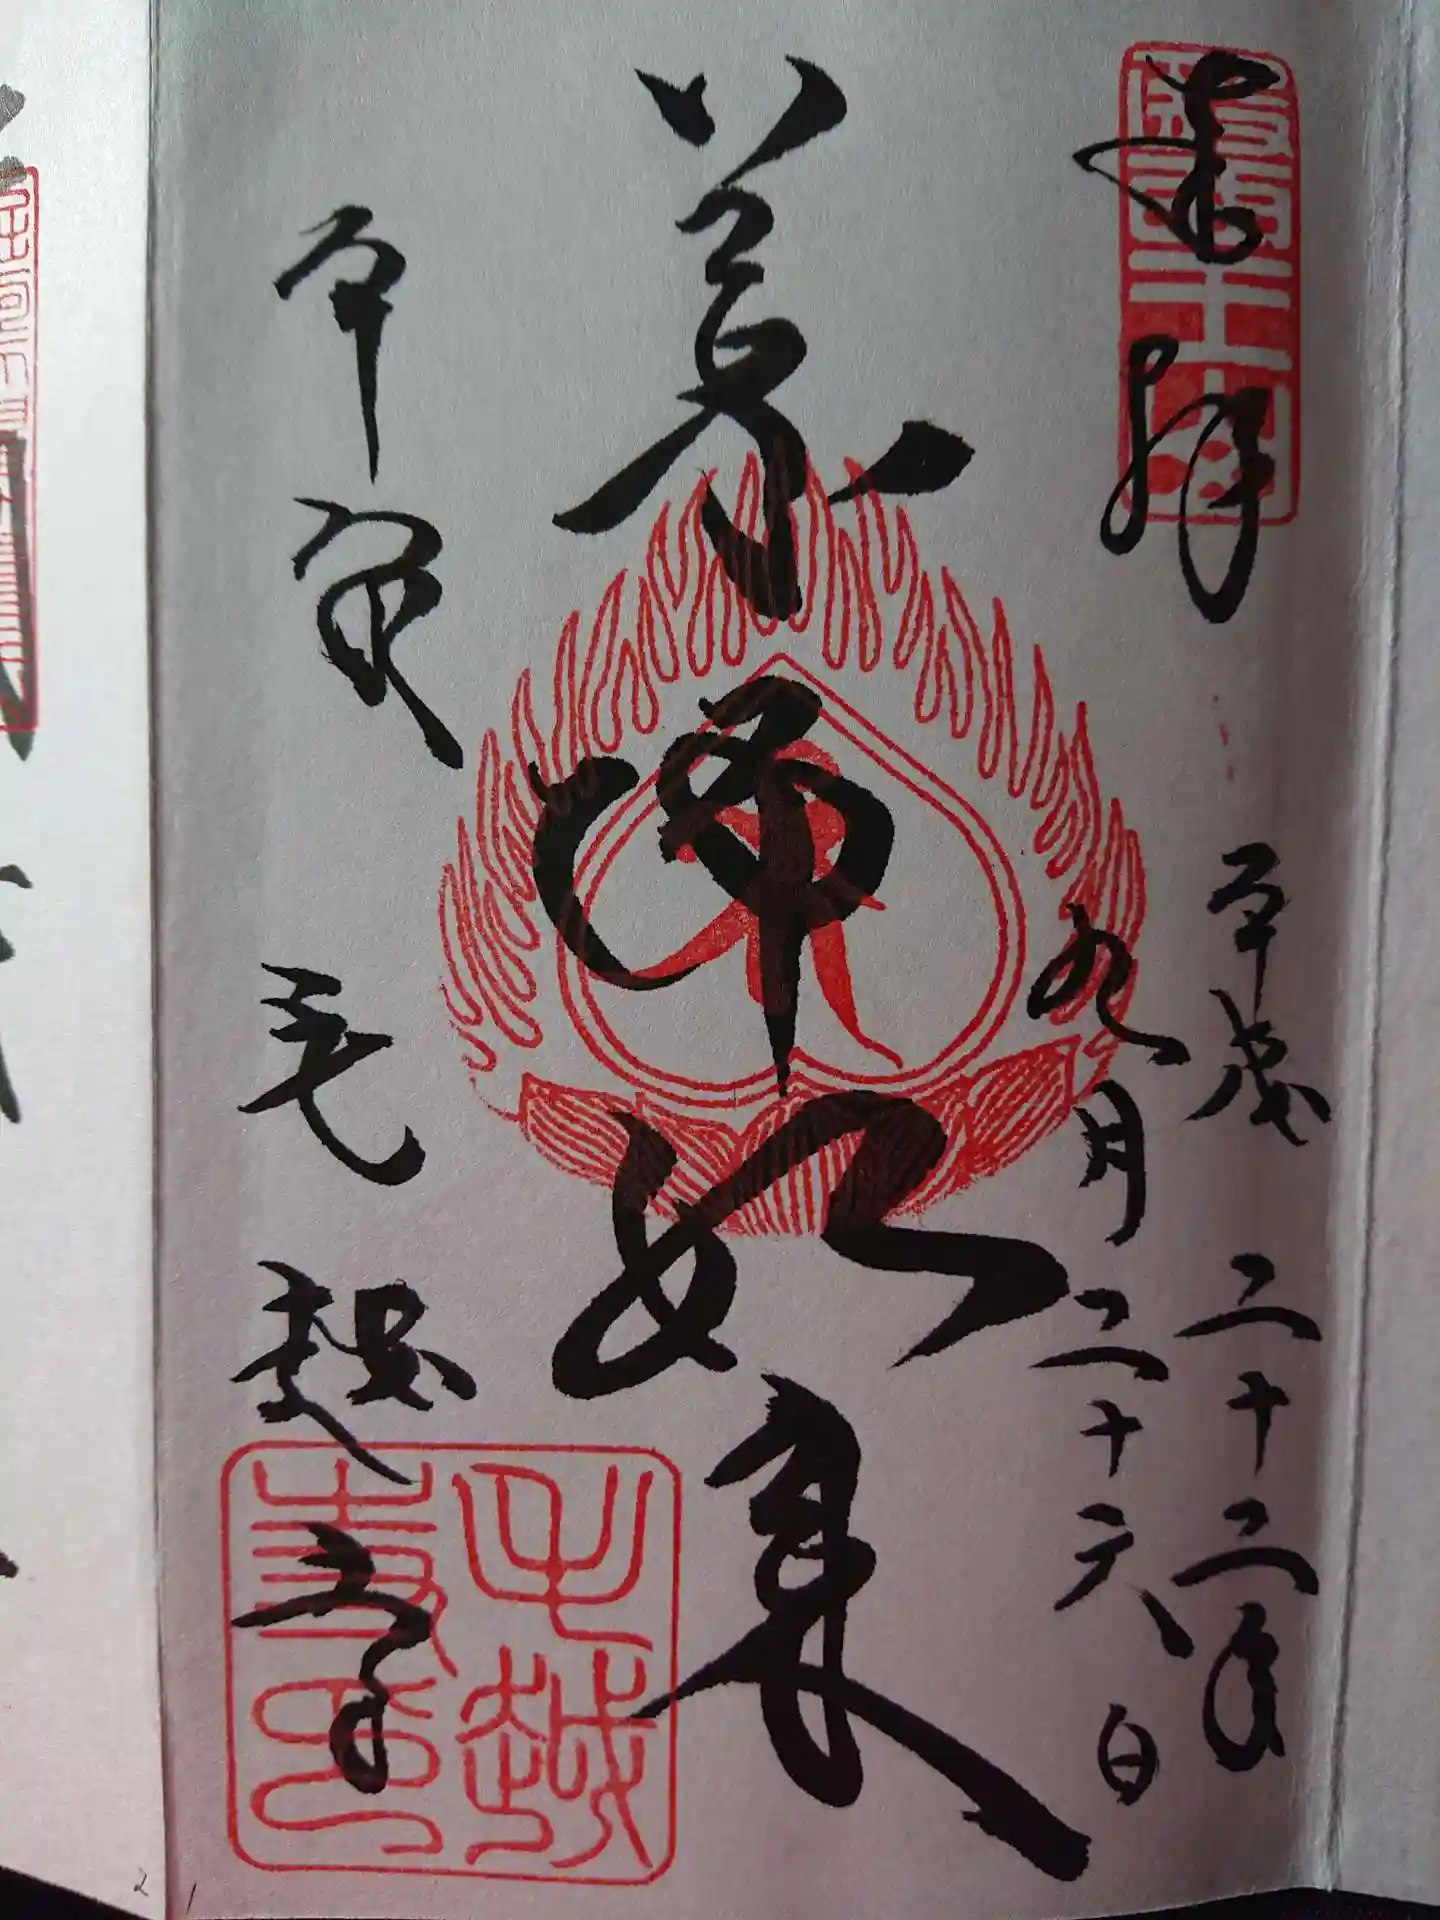 奉拝
平成二十二年
九月二十六日
薬師如来
平泉
毛越寺
毛越寺印
21